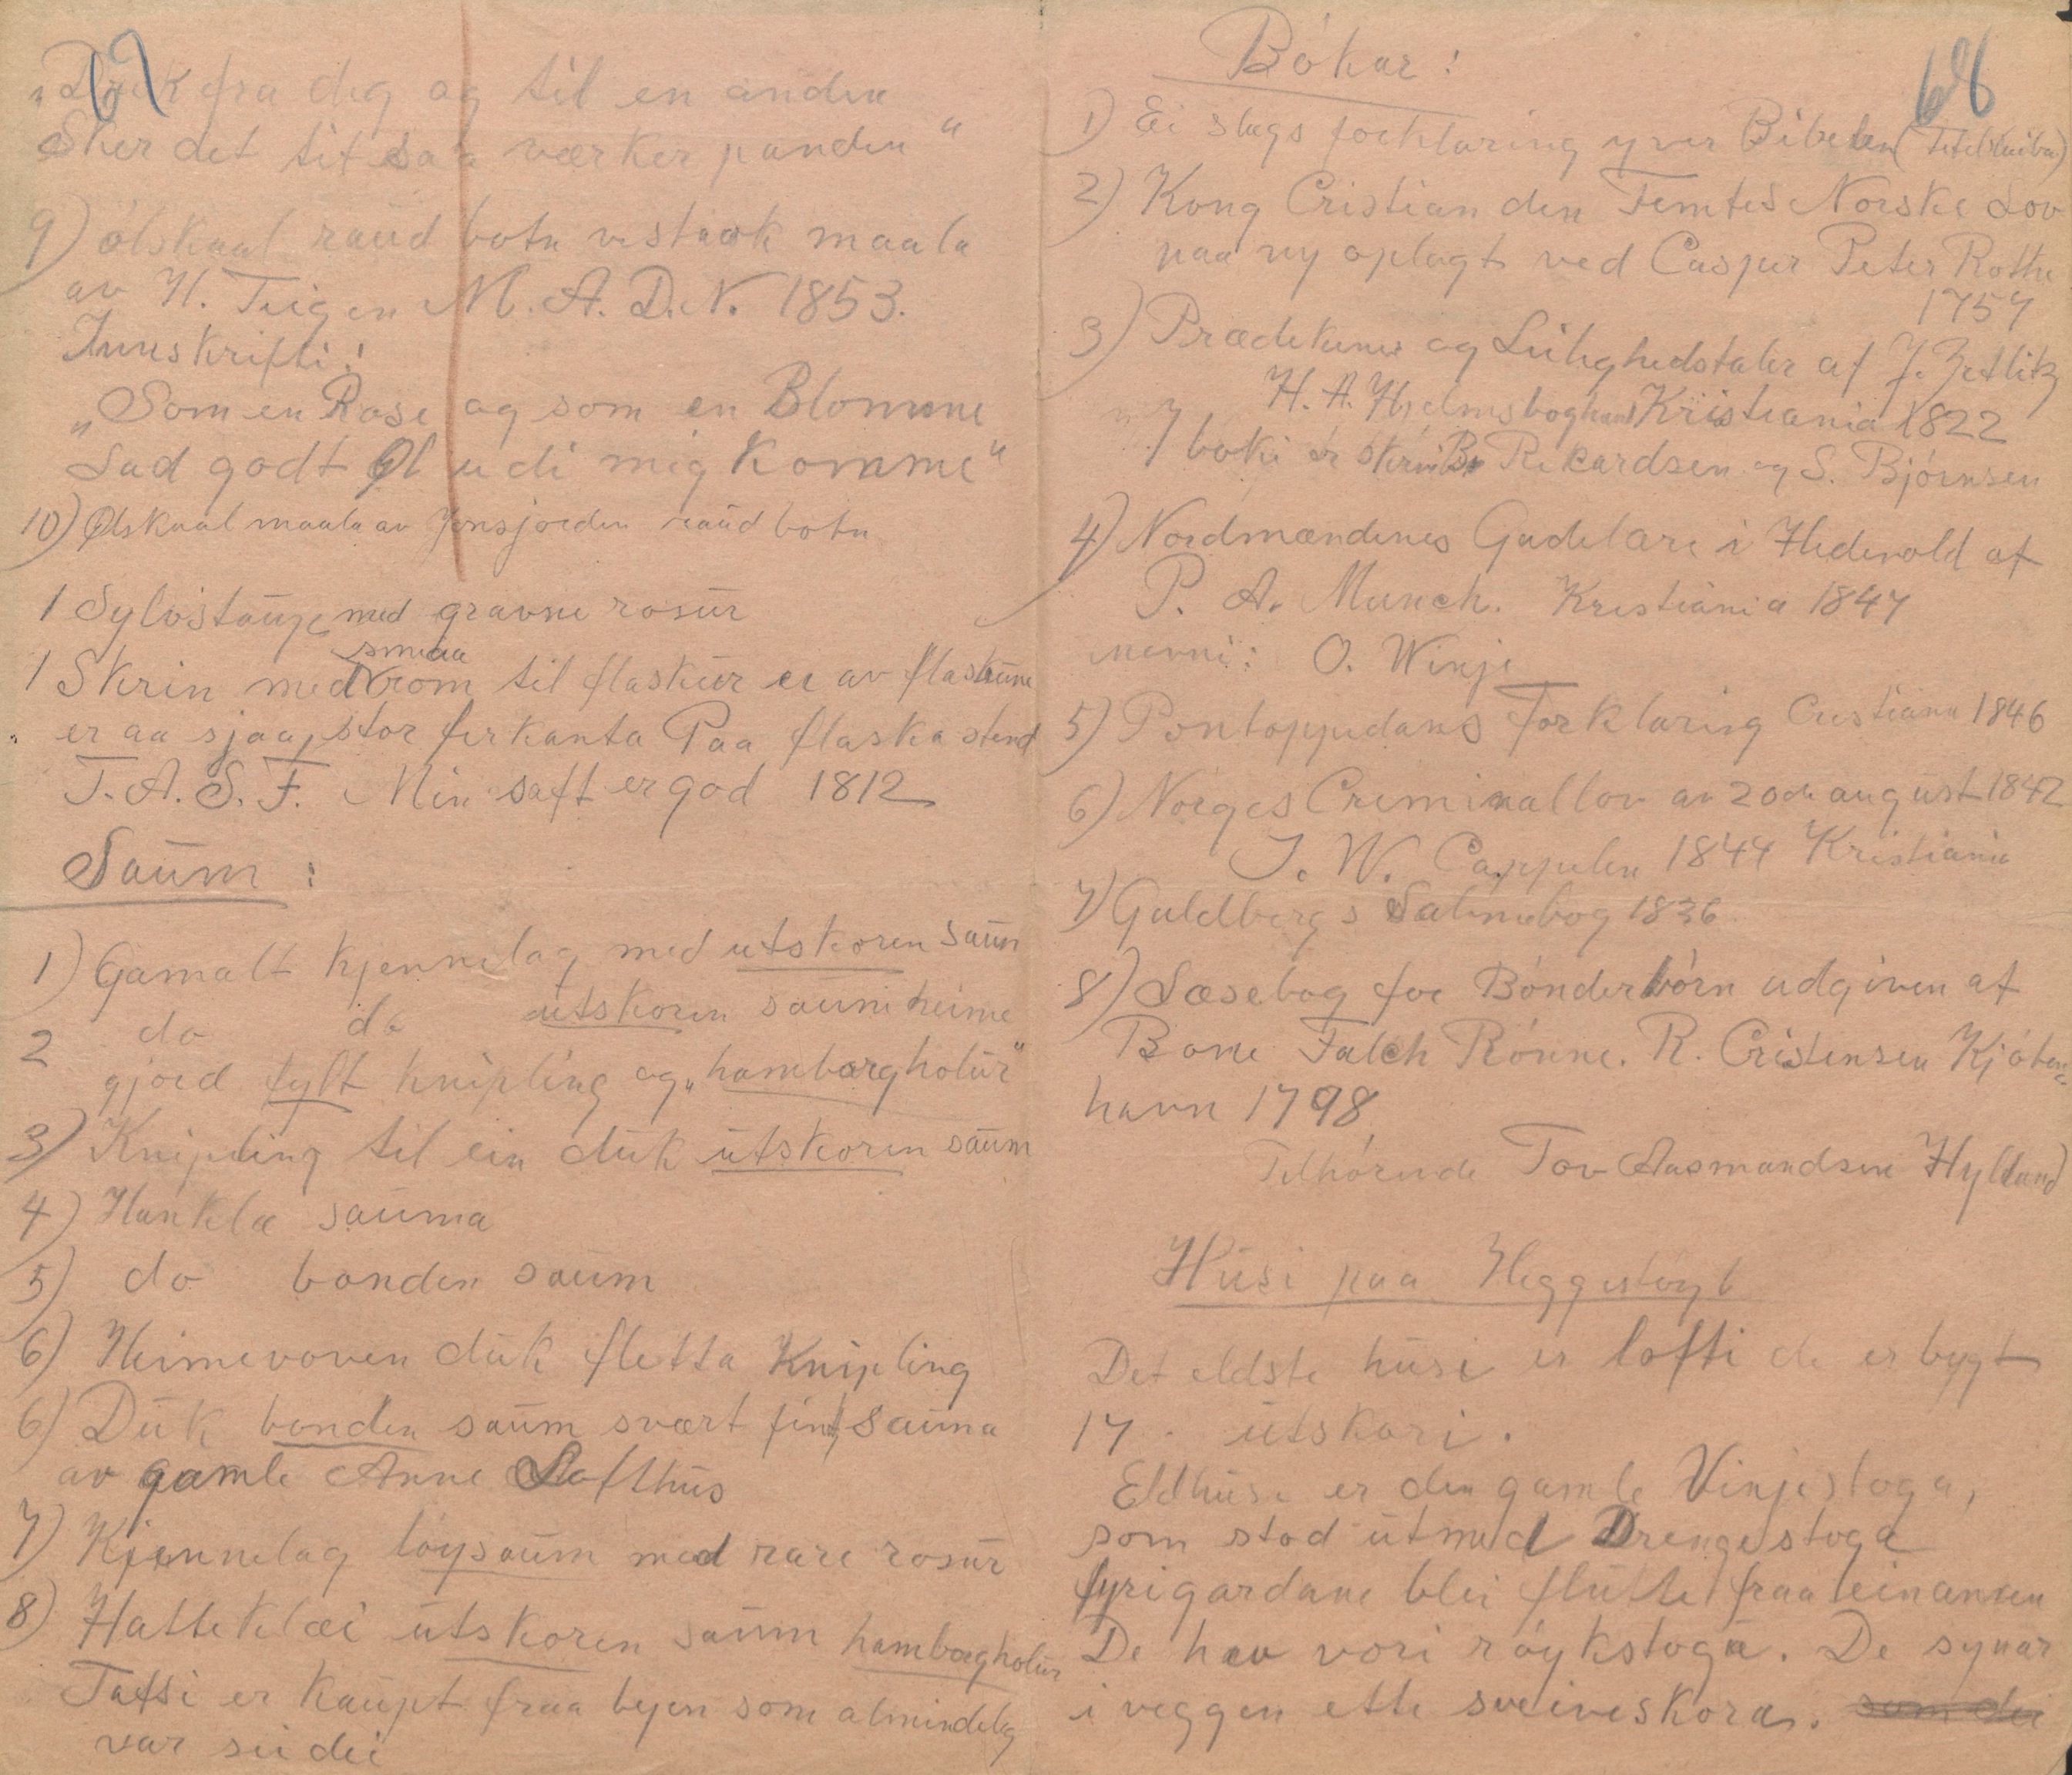 67
"Drik fra dig og til en anden
Sker det tit saa værker panden"
9) ølskaal raud botn vestaok maala
av H. Teigen M. A. D. N. 1853.
Innskrifti:
"Som en Rose og som en Blomme
Lad godt Øl udi mig Komme"
10) Ølskaal maala av Jonsjorden raud botn
1 Sylvstaup med gravne rosur
1 Skrin med smaa rom til flaskur ei av flaskune
er aa sjaa, stor firkanta Paa flaska stend
T. A. S. F. Min saft er god 1812
Saum:
1) Gamalt kjennelag med utskoren saum
2 do do utskoren saum heime
gjord fylt knipling og "hamborgholur"
3) Knipling til ein duk utskoren saum
4) Hankle sauma
5) do bonden saum
6) Heimevoven duk fletta Knipling
6) Duk bonden saum svært fint sauma
av gamle Anne Lofthus
7) Kjennelag løysaum med rare rosur
8) Hatteklæi utskoren saum hamborgholur
Taftsi er kaupt fraa byen som almindelig
var sii dei
68
Bókar:
1) Ei slags forklaring yver Bibelen (Titelskriba)
2) Kong Cristian den Femtes Norske Lov
paa ny oplagt ved Casper Peter Rothe
1757
3) Prædekener og Leilighedstaler af J. Zetlitz
H. A. Hjelms boghand Kristiania 1822
I boki er skrivi Rikardsen og S. Bjórnsen
4) Nordmændenes Gudelære i Hedenold af
P. A. Munch. Kristiania 1847
mavni: O. Winje
5) Pontoppidans Forklaring Cristiania 1846
6) Norges Criminallov av 20de august 1842
J. W. Cappelen 1844 Kristiania
7) Guldbergs Salmebog 1836
8) Læsebog for Bónderbórn udgiven af
Bone Falch Rónne. R. Cristensen Kjóben=
havn 1798
Tilhórende Tov Aasmundsen Hylland
Husi paa Heggestøyl
Det eldste husi er lofti de er bygt
17 . utskori.
Eldhusi er den gamle Vinjestoga,
som stod utmed Drengestoga
fyri gardane blei flutte fraa einannen
De hev vori røykstoga. De synar
i veggen ette sveiveskora. som dei